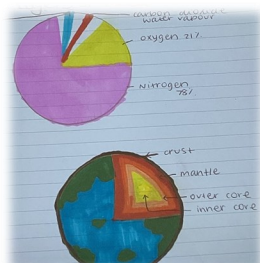 water vapour
oxygen 21%
Nitrogen
78%
crust
mantle
outer core
inner core